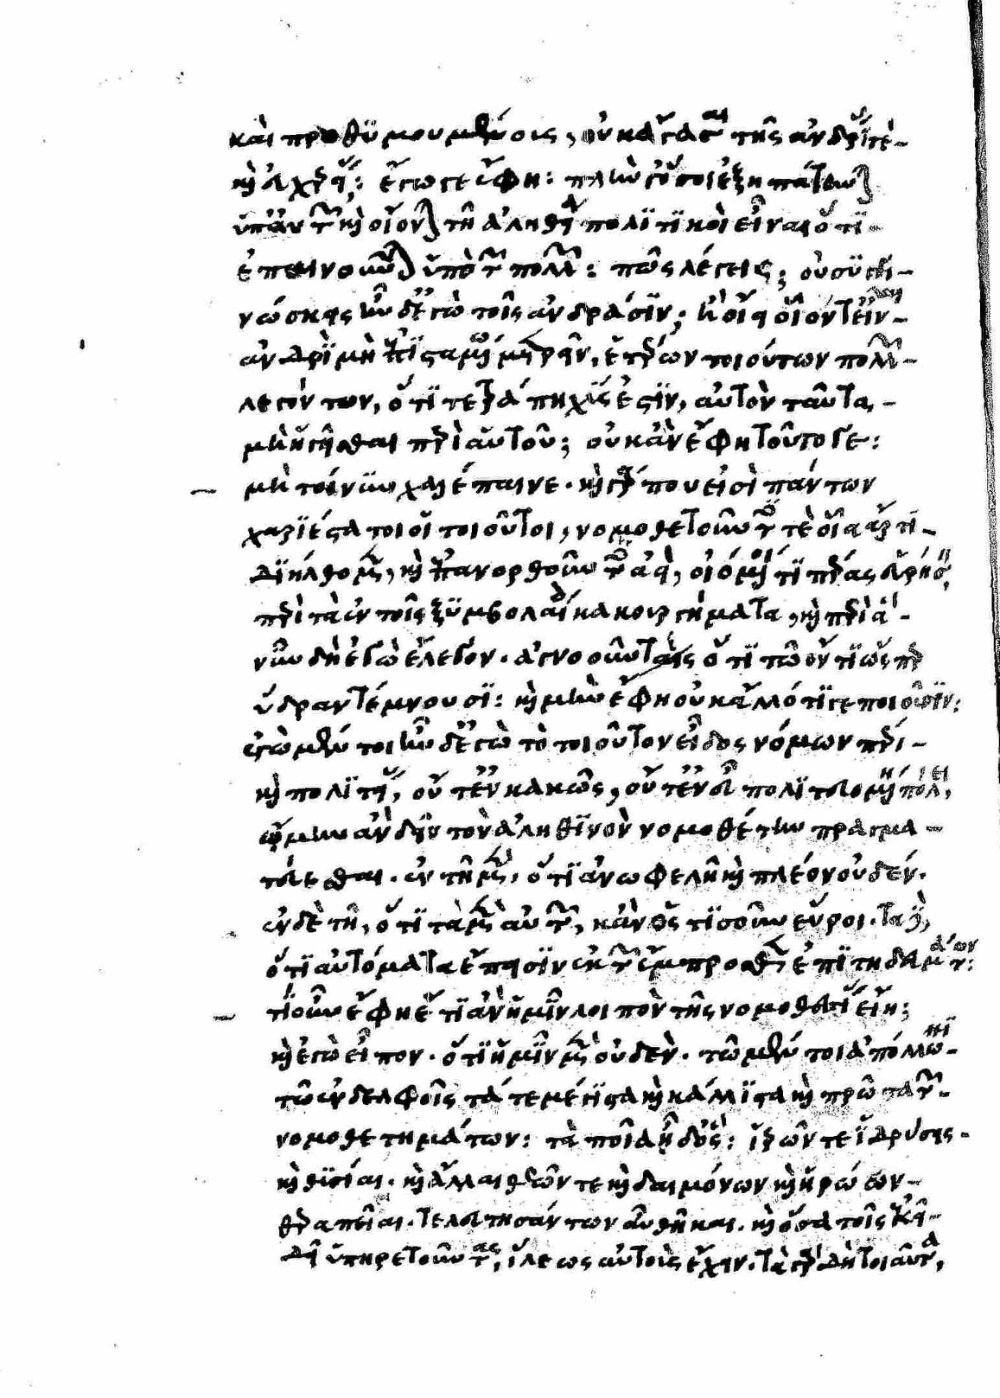 καὶ προθϋμουμένοις, οὐκ ἄγασαι τῆς ἀνδρείας τὲ
καὶ εὐχερείας: ἔγωγε ἔφη: πλὴν γ' ὅσοι ἐξηπάτηνται
ὑπ' αὐτῶν καὶ οἴονται τῆ ἀληθεία πολϊτϊκοὶ εἶναι ὅτϊ
ἐπαινοῦνται ὑπὸ τῶν πολλῶν: πῶς λέγεις; οὐ συγγι-
νώσκεις ἦν δ' ἐγὼ τοῖς ἀνδράσϊν; ἢ οἴει οἷόν τ' εἶναι
ἀνδρὶ μὴ ἐπισταμένω μετρεῖν, ἑτέρων τοιούτων πολλῶν
λεγόντων, ὅτϊ τετράπηχύς ἐστϊν, αὐτὸν ταῦτα
μὴ ἡγεῖσθαι περὶ αὑτοῦ; οὐκ ἂν ἔφη τοῦτό γε:
μὴ τοίνυν χαλέπαινε. καὶ γάρ που εἰσὶ πάντων
χαριέστατοι οἱ τοιοῦτοι, νομοθετοῦντές τὲ οἷα ἄρτϊ
διήλθομεν, καὶ ἐπανορθοῦντες ἀεὶ, οἰόμενοί τϊ πέρας εὑρήσειν
περὶ τὰ ἐν τοῖς ξυμβολαίοις κακουργήματα, καὶ περὶ ἃ
νῦν δὴ ἐγὼ ἔλεγον. ἀγνοοῦντες ὅτϊ τῶ ὄντϊ ὥσπερ
ὕδραν τέμνουσϊ: καὶ μὴν ἔφη οὐκ ἄλλό τϊ γε ποιοῦσϊν:
ἐγὼ μέν τοι ἦν δ' ἐγὼ τὸ τοιοῦτον εἶδος νόμων πέρι
καὶ πολϊτείας, οὔτ' ἐν κακῶς, οὔτ' ἐν εὖ πολϊτευομένη πόλει,
ὤμην ἂν δεῖν τὸν ἀληθϊνὸν νομοθέτην πραγμα-
τεύεσθαι. ἐν τῆ μὲν, ὅτϊ ἀνωφελῆ καὶ πλέον οὐδέν.
ἐν δὲ τῆ, ὅτϊ τὰ μὲν αὐτῶν, κἂν ὅστϊσοῦν εὕροι. τὰ δὲ,
ὅτϊ αὐτόματα ἔπεισϊν ἐκ τῶν ἔμπροσθεν ἐπϊτηδευμάτων:
τί οὖν ἔφη ἔτϊ ἂν ἡμῖν λοιπὸν τῆς νομοθεσίας εἴη;
καὶ ἐγὼ εἶπον. ὅτϊ ἡμῖν μὲν οὐδὲν. τῶ μέν τοι ἀπόλλωνϊ
τῶ ἐν δελφοῖς τά τε μέγϊστα καὶ κάλλϊστα καὶ πρῶτα τῶν
νομοθετημάτων: τὰ ποῖα ἦ δ' ὅς: ἱερῶν τε ἱδρύσεις
καὶ θϋσίαι. καὶ ἄλλαι θεῶν τε καὶ δαιμόνων καὶ ἡρώων
θεραπεῖαι. τελευτησάντων αὖ θῆκαι. καὶ ὅσα τοῖς ἐκεῖ
δεῖ ὑπηρετοῦντας, ἵλεως αὐτοὺς ἔχειν. τὰ γὰρ δὴ τοιαῦτα,